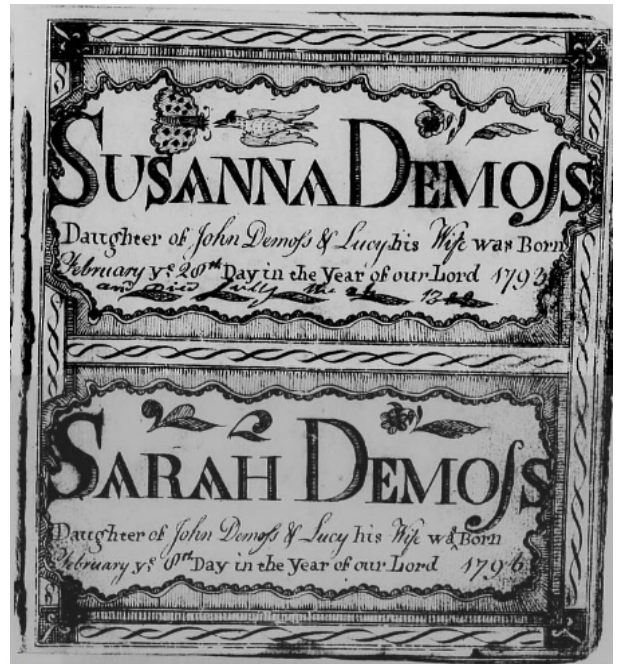 SUSANNA DEMOſS
Daughter of John Demoſs & Lucy his Wife was Born
February yͤ 28th Day in the Year of our Lord 1793
and Died the
SARAH DEMOſS
Daughter of John Demoſs & Lucy his Wife was Born
February yͤ 8th Day in the Year of our Lord 1796